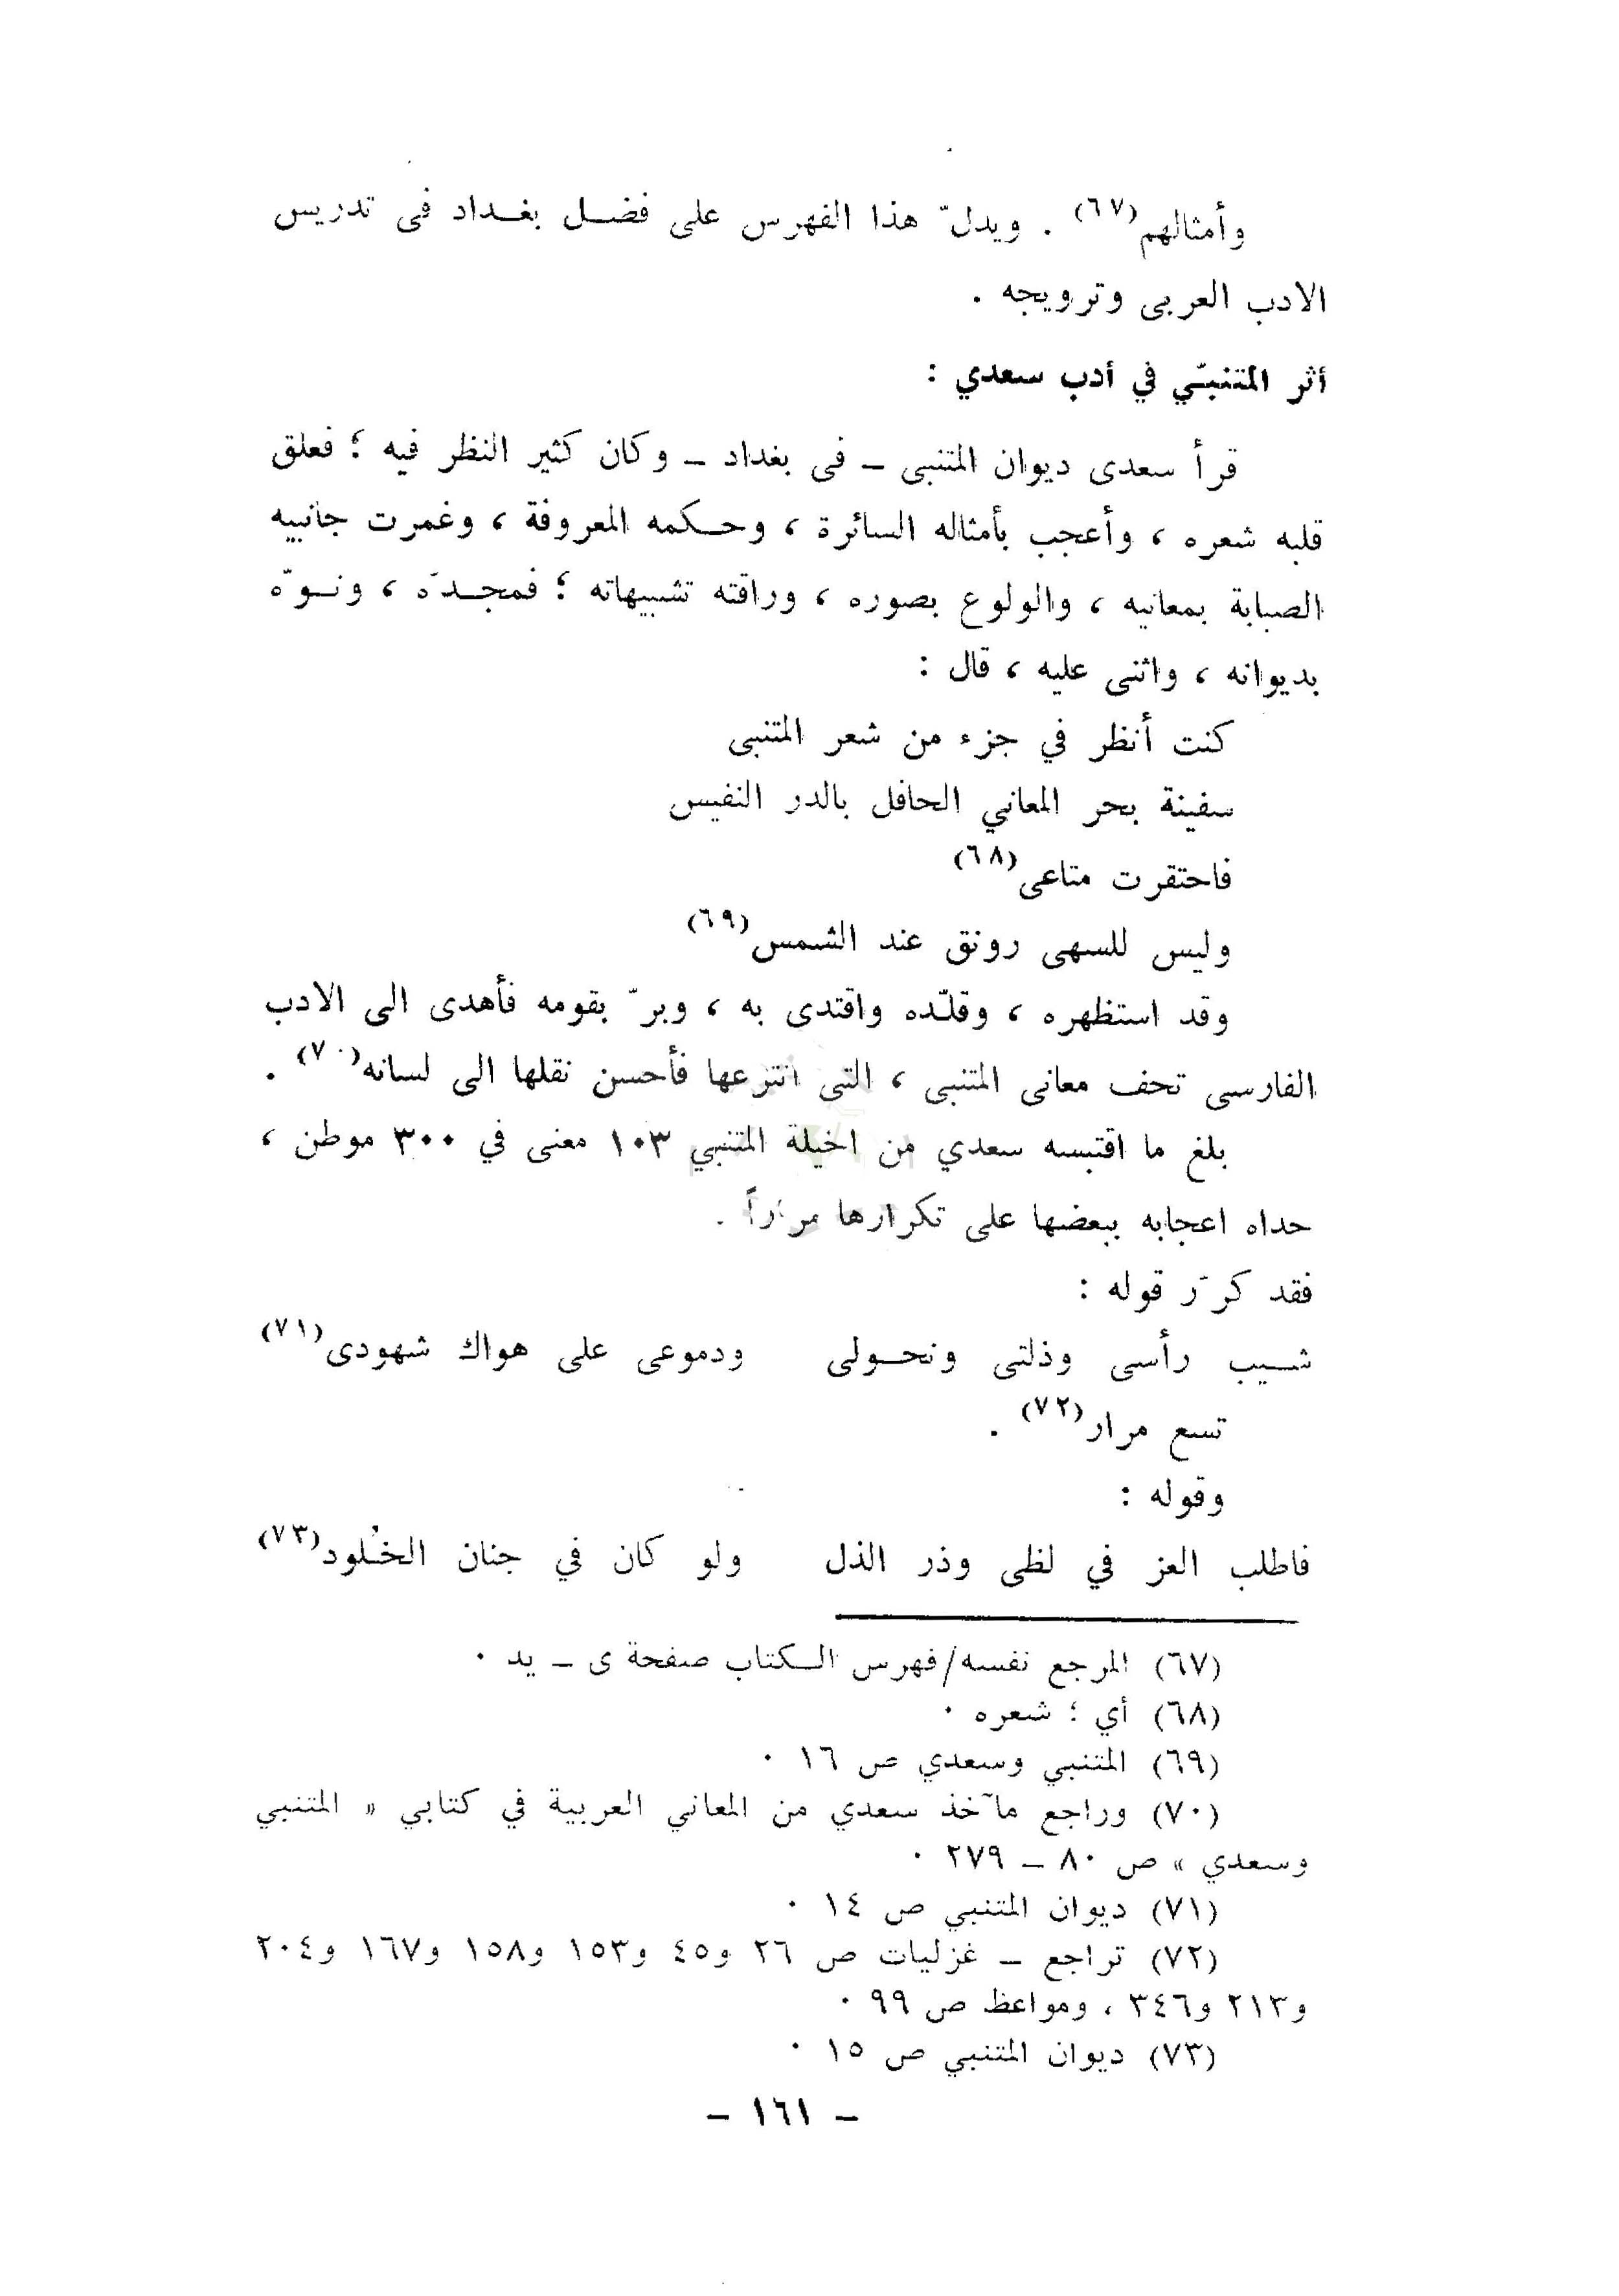 وأمثالهم(٦٧) . ويدلّ هذا الفهرس على فضل بغداد فى تدريس
الادب العربى وترويجه .
أثر المتنبّي في أدب سعدي :
قرأ سعدى ديوان المتنبى – فى بغداد – وكان كثير النظر فيه ؛ فعلق
قلبه شعره ، وأعجب بأمثاله السائرة ، وحكمه المعروفة ، وغمرت جانبيه
الصبابة بمعانيه ، والولوع بصوره ، وراقته تشبيهاته ؛ فمجدّه ، ونوّه
بديوانه ، واثنى عليه ، قال :
كنت أنظر في جزء من شعر المتنبى
سفينة بحر المعاني الحافل بالدر النفيس
فاحتقرت متاعى(٦٨)
وليس للسهى رونق عند الشمس(٦٩)
وقد استظهره ، وقلّده واقتدى به ، وبرّ بقومه فأهدى الى الادب
الفارسى تحف معانى المتنبى ، التى انتزعها فأحسن نقلها الى لسانه(٧٠) .
بلغ ما اقتبسه سعدي من اخيلة المتنبي ١٠٣ معنى في ٣٠٠ موطن ،
حداه اعجابه ببعضها على تكرارها مراراً .
فقد كرّر قوله :
شيب رأسى وذلتى ونحولى ودموعى على هواك شهودى(٧١)
تسع مرار(٧٢) .
وقوله :
فاطلب العز في لظى وذر الذل ولو كان في جنان الخُلود(٧٣)
(٦٧) المرجع نفسه/فهرس الكتاب صفحة ى – يد ٠
(٦٨) أي ؛ شعره ٠
(٦٩) المتنبي وسعدي ص ١٦ ٠
(٧٠) وراجع مآخذ سعدي من المعاني العربية في كتابي « المتنبي
وسعدي » ص ٨٠ – ٢٧٩ ٠
(٧١) ديوان المتنبي ص ١٤ ٠
(٧٢) تراجع – غزليات ص ٢٦ و٤٥ و١٥٣ و١٥٨ و١٦٧ و٢٠٤
و٢١٣ و٣٤٦ ، ومواعظ ص ٩٩ ٠
(٧٣) ديوان المتنبي ص ١٥ ٠
– ١٦١ –